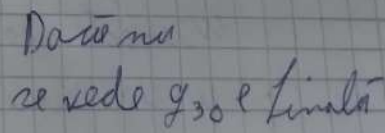 Dacă nu
se vede g₃₀ e finală